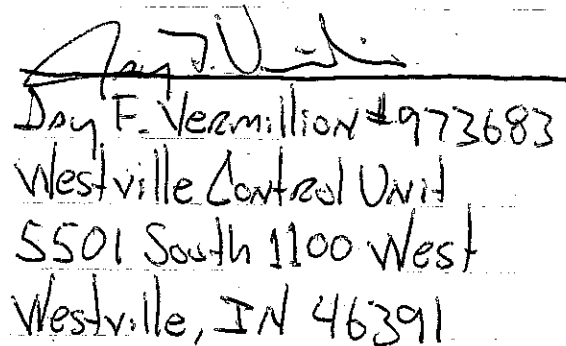 Jay F. Vermillion #973683
Westville Control Unit
5501 South 1100 West
Westville, IN 46391